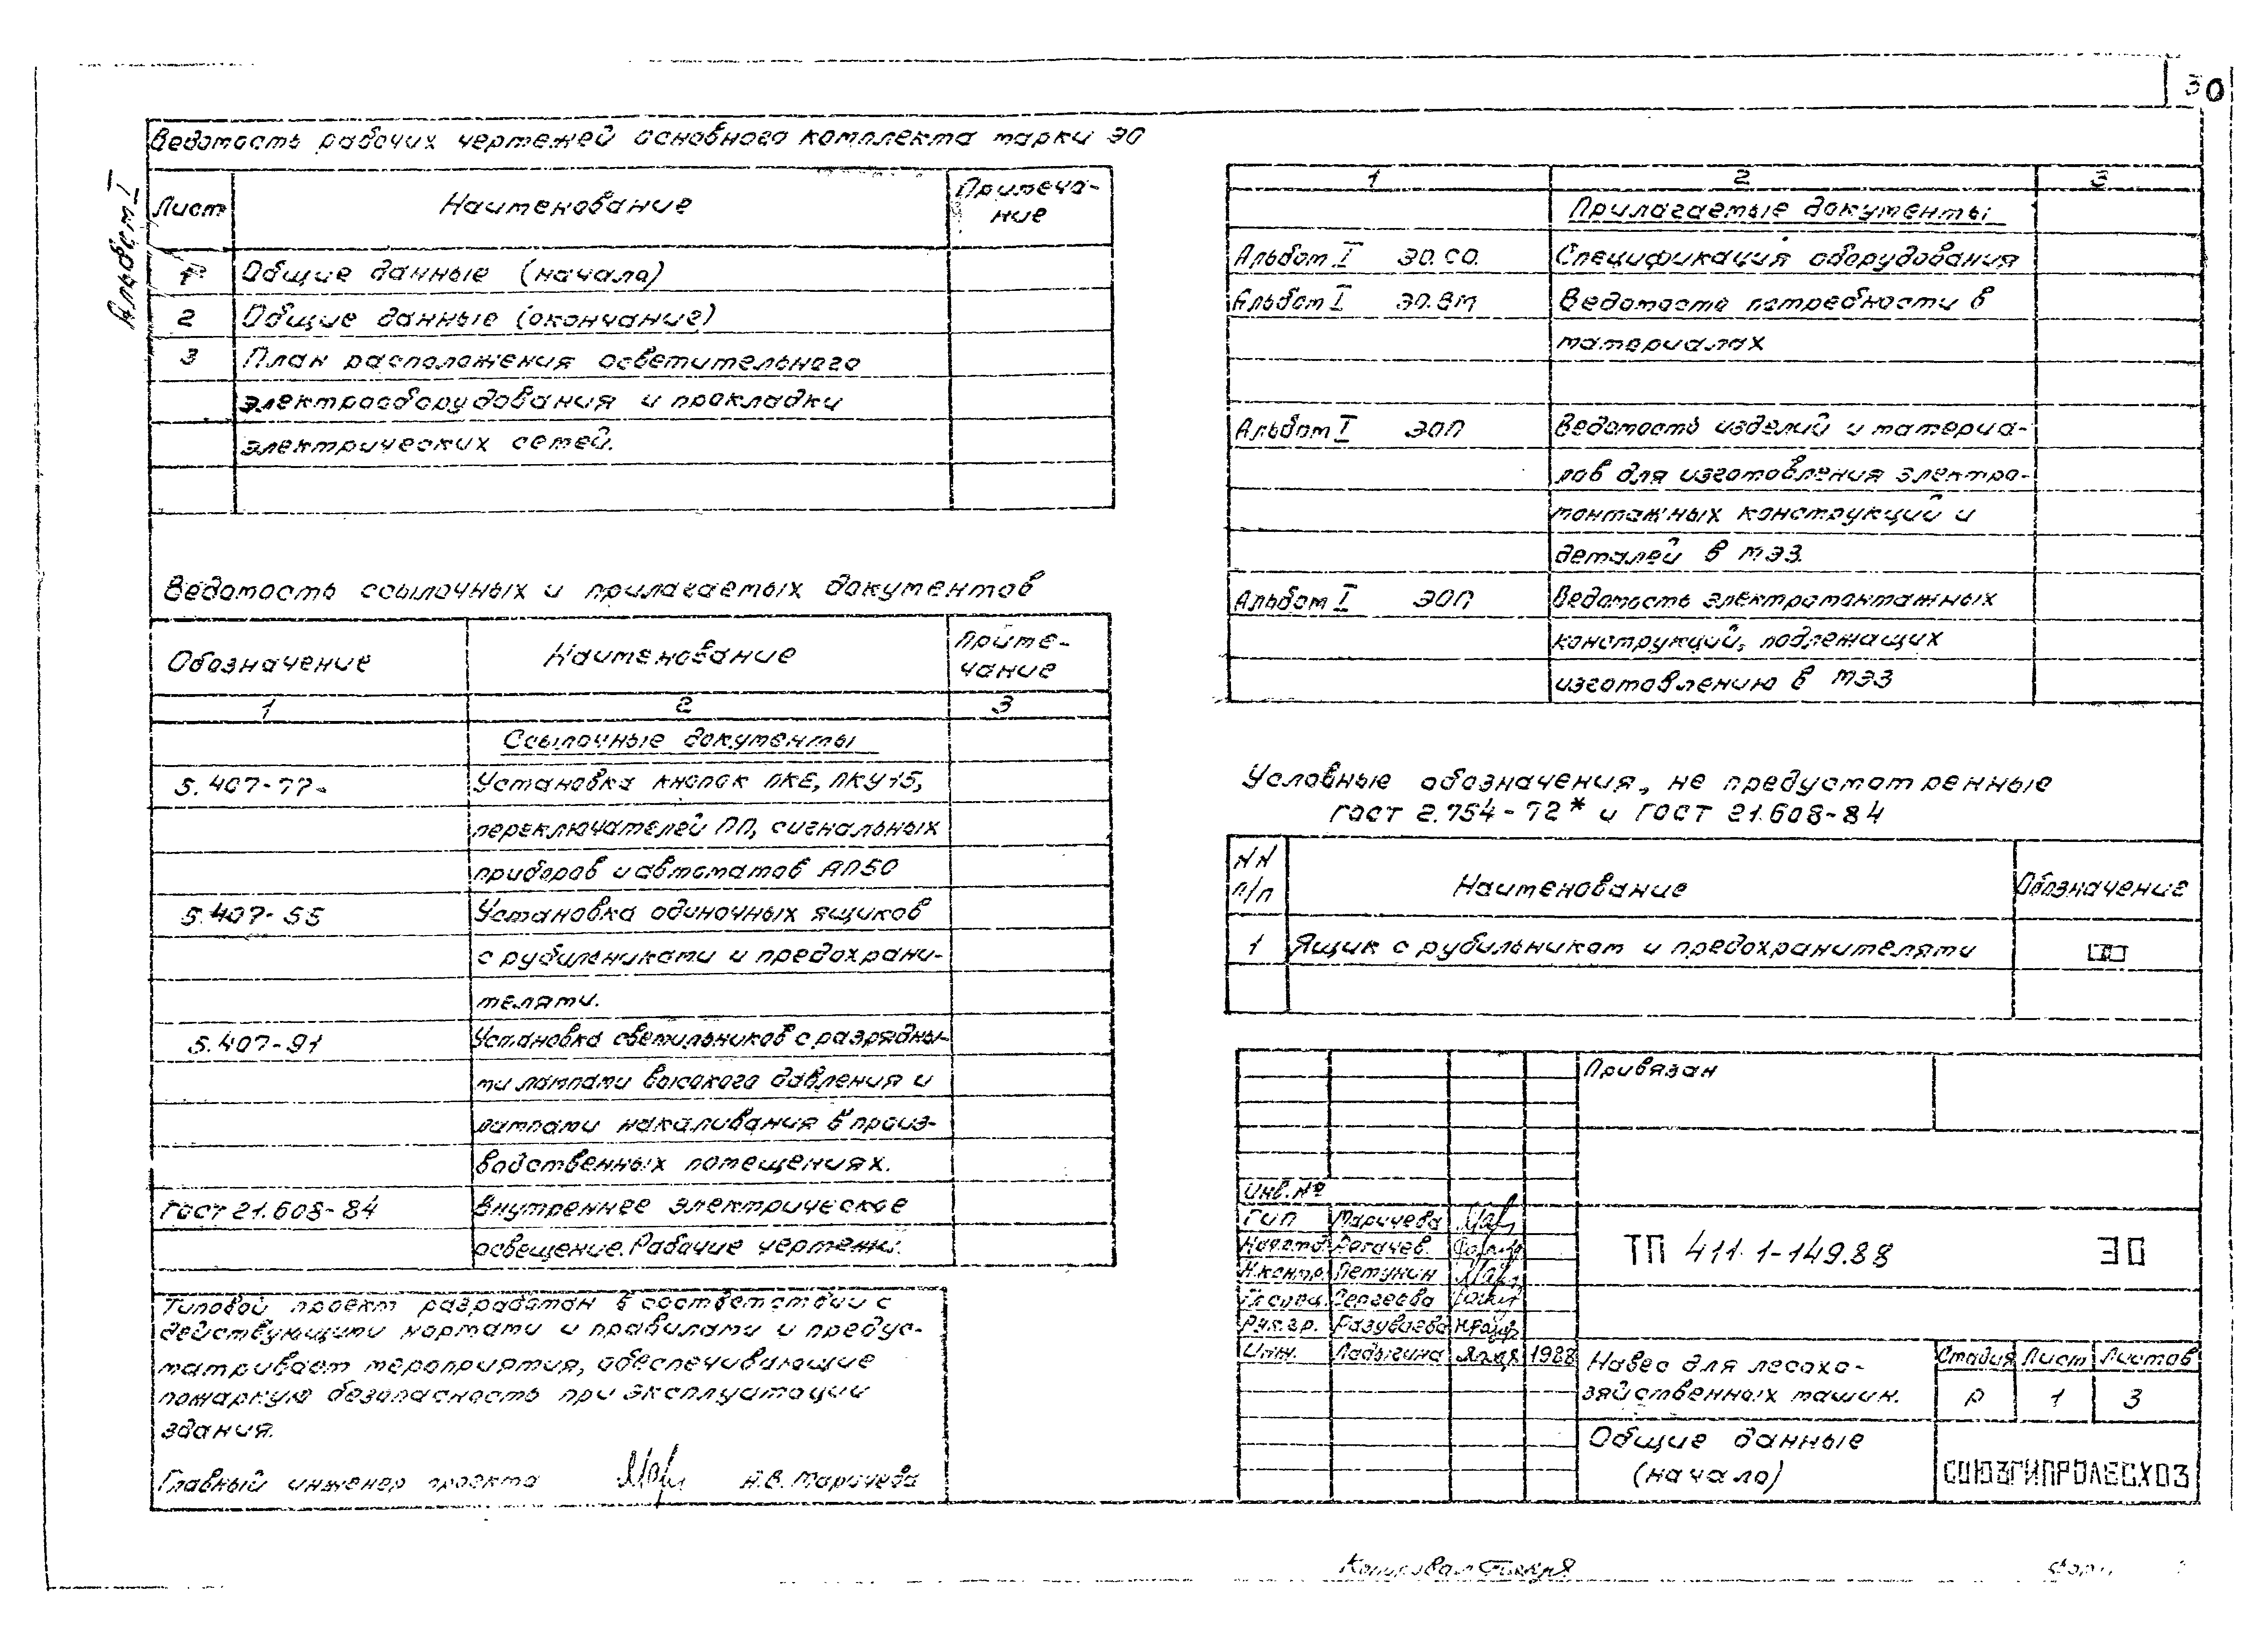 30
Альбом I
Ведомость рабочих чертежей основного комплекта марки ЭО
Лист
Наименование
Примеча-
ние
1
Общие данные (начало)
2
Общие данные (окончание)
3
План расположения осветительного
электрооборудования и прокладки
электрических сетей.
Ведомость ссылочных и прилагаемых документов
Обозначение
Наименование
Приме-
чание
1
2
3
Ссылочные документы
5.407-77
Установка кнопок ПКЕ, ПКУ15,
переключателей ПП, сигнальных
приборов и автоматов АП50
5.407-55
Установка одиночных ящиков
с рубильниками и предохрани-
телями.
5.407-91
Установка светильников с разрядны-
ми лампами высокого давления и
лампами накаливания в произ-
водственных помещениях.
ГОСТ 21.608-84
Внутреннее электрическое
освещение. Рабочие чертежи.
Типовой проект разработан в соответствии с
действующими нормами и правилами и предус-
матривает мероприятия, обеспечивающие
пожарную безопасность при эксплуатации
здания.
Главный инженер проекта
Н.В. Маричева
1
2
3
Прилагаемые документы
Альбом I ЭО.СО.
Спецификация оборудования
Альбом I ЭО.ВМ
Ведомость потребности в
материалах
Альбом I ЭОП
Ведомость изделий и материа-
лов для изготовления электро-
монтажных конструкций и
деталей в МЭЗ.
Альбом I ЭОП
Ведомость электромонтажных
конструкций, подлежащих
изготовлению в МЭЗ
Условные обозначения, не предусмотренные
ГОСТ 2.754-72* и ГОСТ 21.608-84
NN
п/п
Наименование
Обозначение
1
Ящик с рубильником и предохранителями
Привязан
Инв. №
ГИП Маричева
Нач.отд. Рогачев.
Н.контр. Петунин
Гл.спец. Сергеева
Рук.гр. Разуваева
Инж. Ладыгина 1988
ТП 411.1-149.88
ЭО
Навес для лесохо-
зяйственных машин.
Стадия Лист Листов
Р 1 3
Общие данные
(начало)
СОЮЗГИПРОЛЕСХОЗ
Копировал